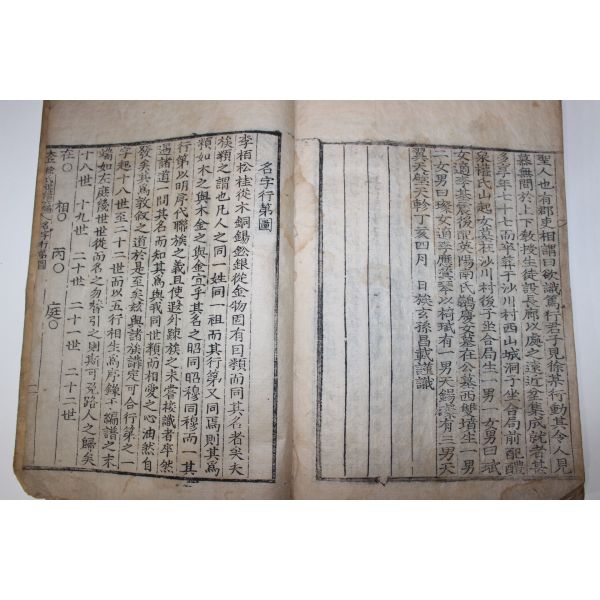 聖人也有郡吏相謂曰欲識篤行君子見徐某行動其令人見
慕無間於上下敎授生徒設長廊以處之遠近坌集成就者甚
多享年七十七而卒葬于沙川村西山城洞子坐合局前配醴
泉權氏山起女墓在沙川村後子坐合局生一男一女男曰珷
女適李基震後配英陽南氏鶴慶女墓在公墓西雙墳生一男
二女男曰璨女適李應漢琴以椅珷有一男天錫璨有三男天
翼天壁天軫丁亥四月 日族玄孫昌載謹識
名字行第圖
李栢松桂從木銅錫鈆銀從金物固有因類而同其名者矣夫
族類之謂也凡人之同一姓同一祖而其行第又同焉則其爲
類如木之與木金之與金宜乎其名之昭同昭穆同穆而一其
行第以明序代聯族之義且使遐外踈族之未嘗接識者卒然
遇諸道一問其名而知其爲與我同世類而相愛之心油然自
發矣其爲敦敘之道於是至矣玆與諸族講定可合行第之一
字起十八世至二十二世而以五行相生爲序錄于編譜之末
端如左庶後世世從而名之勿替引之則斯可免路人之歸矣
十八世 十九世 二十世 二十一世 二十二世
在〇 相〇 丙〇 庭〇
名字行第圖